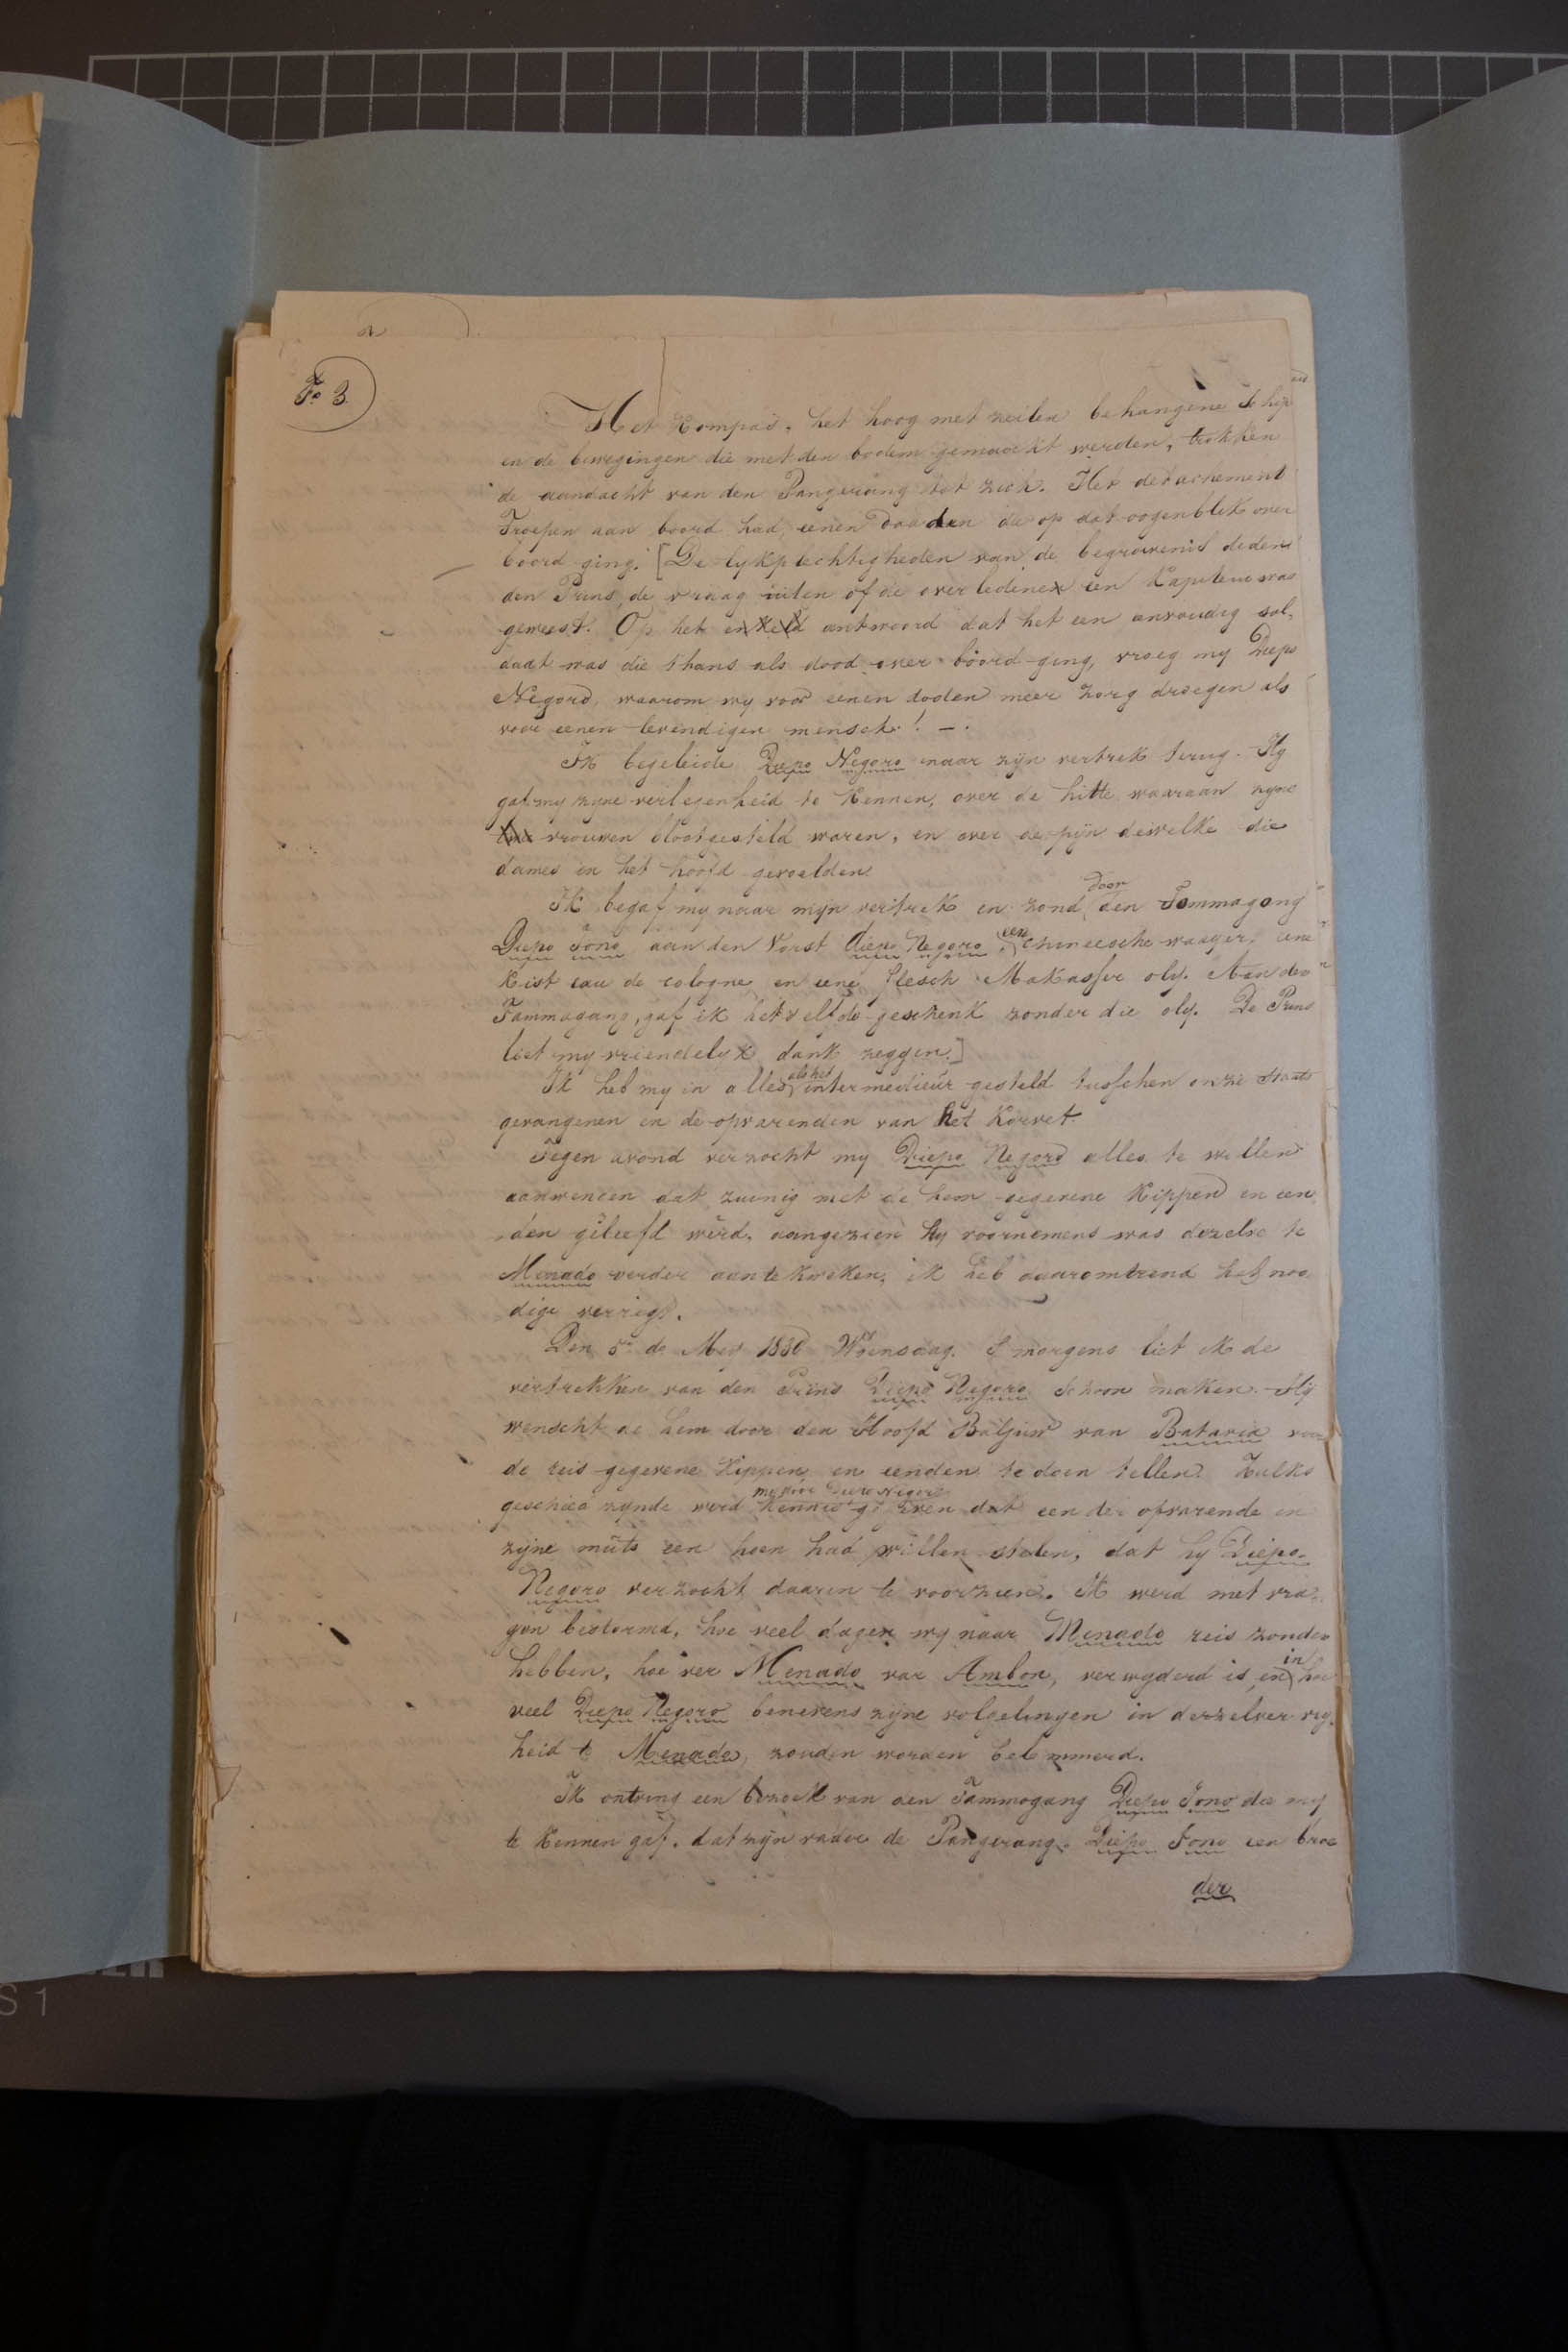 Fo 3.
Het Kompas, het hoog met zeilen behangene Schip
en de bewegingen die met den bodem gemaakt werden, trokken
de aandacht van den Pangerang tot zich. Het detachement
Troepen aan boord had eenen dooden die op dat oogenblik over
boord ging. [De lykplechtigheden van de begravenis deden
den Prins, de vraag uiten of de overledene een Kapitein was
geweest. Op het antwoord dat het een envoudig sol,
daat was die thans als dood over boord ging, vroeg my Diepo
Negoro, waarom wy voor eenen dooden meer zorg droegen als
voor eenen levendigen mensch! —.
Ik begeleide Diepo Negoro naar zijn vertrek terug. Hy
gaf my zyne verlegenheid te kennen, over de hitte waaraan zyne
vrouwen blootgesteld waren, en over de pijn dewelke die
dames in het hoofd gevoelden.
Ik begaf my naar mijn vertrek en zond door den Tommagong
Diepo Sono aan den Vorst Diepo Negoro een chineesche waayer, eene
Kist eau de cologne en eene flesch Makasser oly. Aan den
Tammagang, gaf ik hetzelfde geschenk zonder die oly. De Prins
liet my vriendelyk dank zeggen.]
Ik heb my in alles als het intermedieür gesteld tusschen onze Staats
gevangenen en de opvarenden van het Korvet.
Tegen avond verzocht my Diepo Negoro alles te willen
aanwenden dat zuinig met de hem gegevene Kippen en een,
den geleefd werd, aangezien hy voornemens was dezelve te
Menado verder aantekweken, ik heb daaromtrend het noo
dige verrigt.
Den 5de Mey 1830 Woensdag. S morgens liet ik de
vertrekken van den Prins Diepo Negoro Schoon maken. Hij
wenscht de hem door den Hoofd Baljuw van Batavia voor
de reis gegevene Kippen en eenden te doen tellen. Zulks
geschied zynde werd my door Diepo Negoro kennis gegeven dat een der opvarende in
zijne muts een hoen had willen stelen, dat hy Diepo
Negoro verzocht daarin te voorzien. Ik werd met vra,
gen bestormd, hoe veel dagen wy naar Menado reis zonden
hebben, hoe ver Menado van Ambon, verwyderd is, in hoe
veel Diepo Negoro benevens zyne volgelingen in derzelver vry,
heid te Menado, zouden worden belemmerd.
Ik ontving een bezoek van den Tammogang Diepo Sono die my
te kennen gaf, dat zijn vader de Pangerang Diepo Sono een broe
der